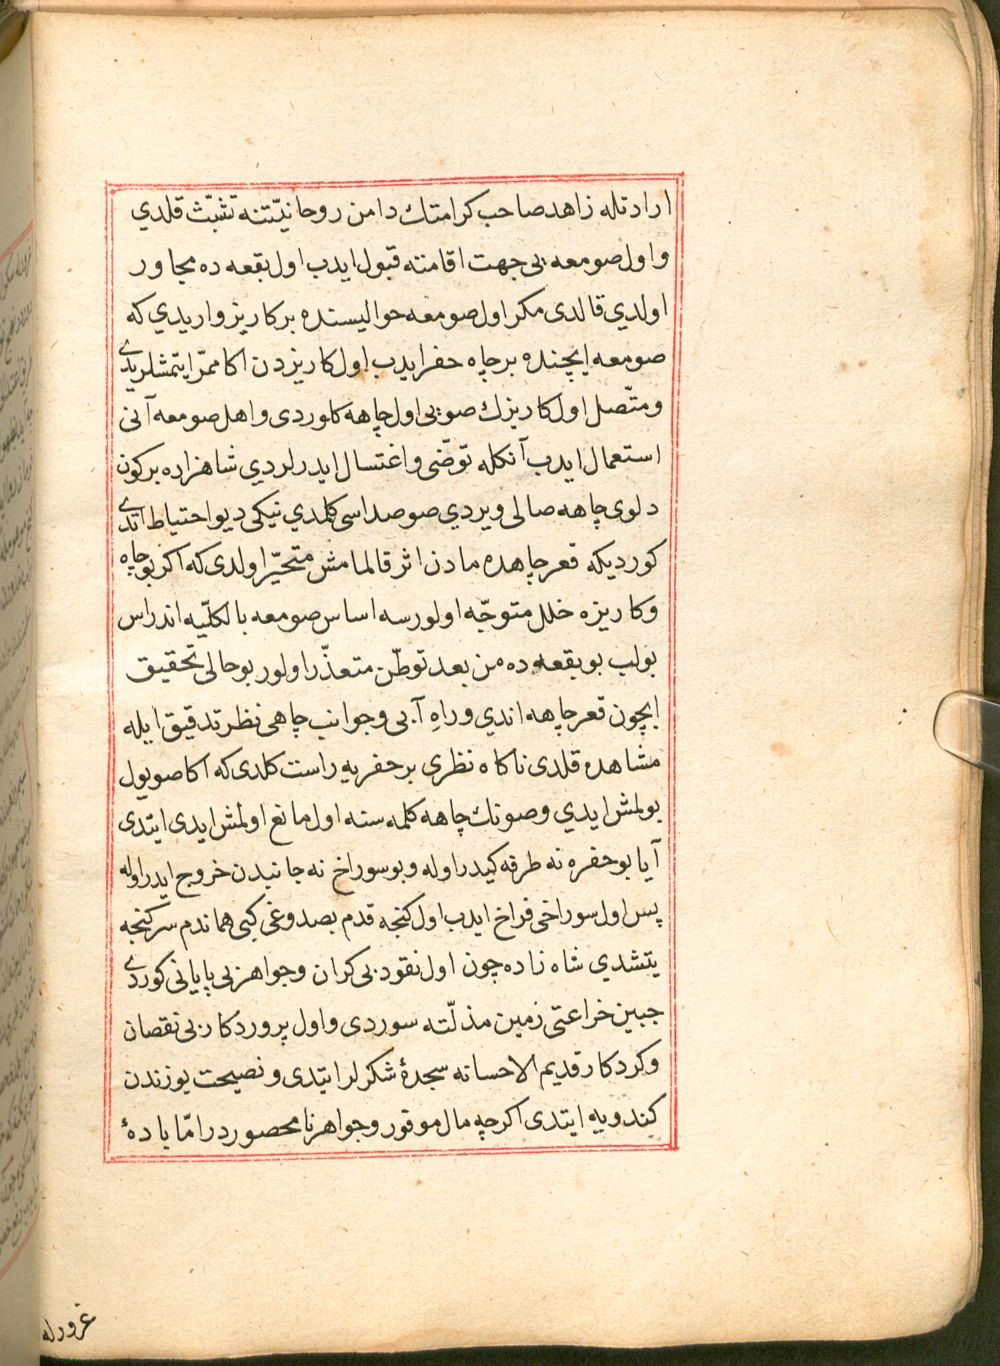 ارادتله زاهد صاحب كرامتك دامن روحانيّتنه تشبّث قلدي
واول صومعه يى جهت اقامته قبول ايدب اول بقعه ده مجاور
اولدي قالدى مكر اول صومعه حواليسنده بر كاريز واريدي كه
صومعه ايچنده بر چاه حفر ايدب اول كاريزدن اكا ممرّ ايتمشلريدى
ومتّصل اول كاريزك صويى اول چاهه كلوردى واهل صومعه آنى
استعمال ايدب آنكله توضّى واغتسال ايدرلردي شاهزاده بركون
دلوى چاهه صالى ويردي صو صداسى كلمدي نيكى ديو احتياط اتدى
كورديكه قعر چاهده مادن اثر قالمامش متحيّر اولدى كه اكر بو چاه
وكاريزه خلل متوجّه اولورسه اساس صومعه بالكلّيه اندراس
بولب بو بقعه ده من بعد توطّن متعذّر اولور بو حالى تحقيق
ايچون قعر چاهه اندي وراه آبى وجوانب چاهى نظر تدقيق ايله
مشاهده قلدى ناكاه نظرى بر حفريه راست كلدى كه اكا صو يول
بولمش ايدي وصونك چاهه كلمه سنه اول مانع اولمش ايدى ايتدى
آيا بو حفره نه طرفه كيدر اوله وبو سوراخ نه جانبدن خروج ايدر اوله
پس اول سوراخى فراخ ايدب اول كنجه قدم بصدوغى كبى هماندم سر كنجه
يتشدي شاه زاده چون اول نقود بى كران وجواهر بى پايانى كوردى
جبين خراعتى زمين مذلّته سوردى واول پروردكار بى نقصان
وكردكار قديم الاحسانه سجدۀ شكرلر ايتدى ونصيحت يوزندن
كندويه ايتدى اكرچه مال موفور وجواهر نامحصوردر امّا بادۀ
غرورله